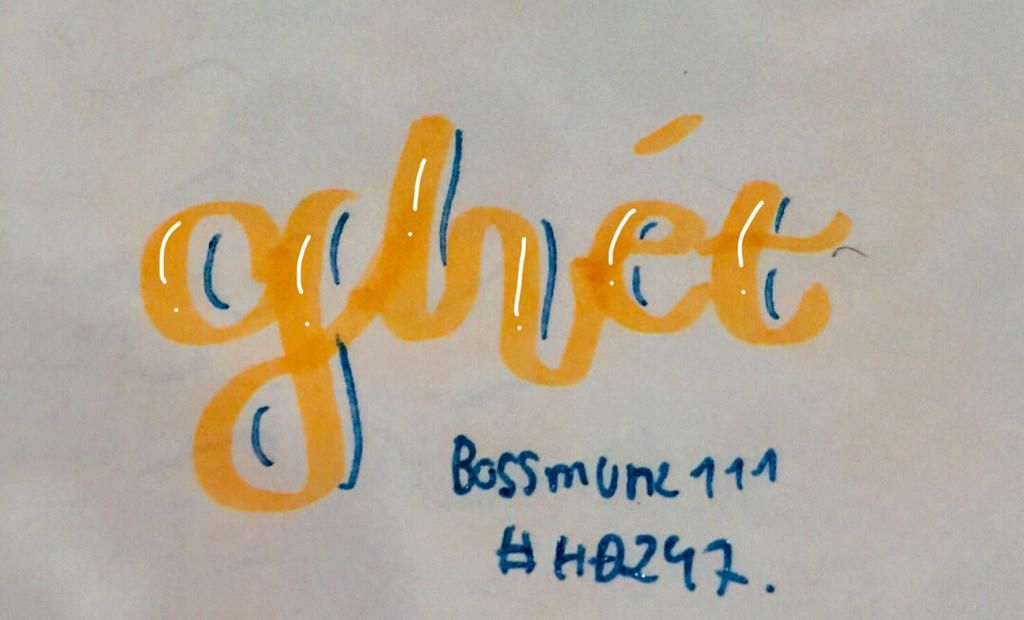 ghét
Bossmunc111
#HD247.